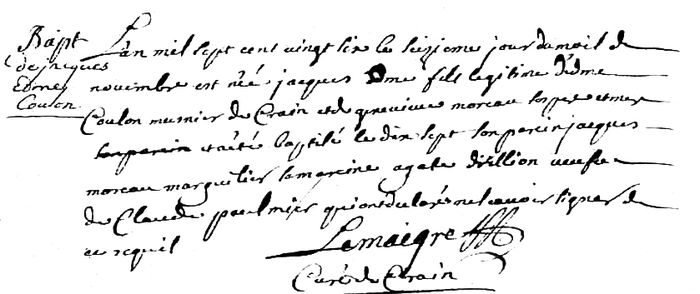 Bapt
de jacques
Edme
Coulon
L'an mil sept cent vingt six le sizieme jour du mois de
novembre est né jacques Edme fils legitime d'edme
Coulon musnier de Crain et de genevieve moreau ses pere et mere
son parein et a été baptisé le dix sept son parein jacques
moreau marguilier sa mareine agate drillion veufve
de Claude paulmier qui ont declaré ne sçavoir signer de
ce requis
Lemaigre
Curé de Crain